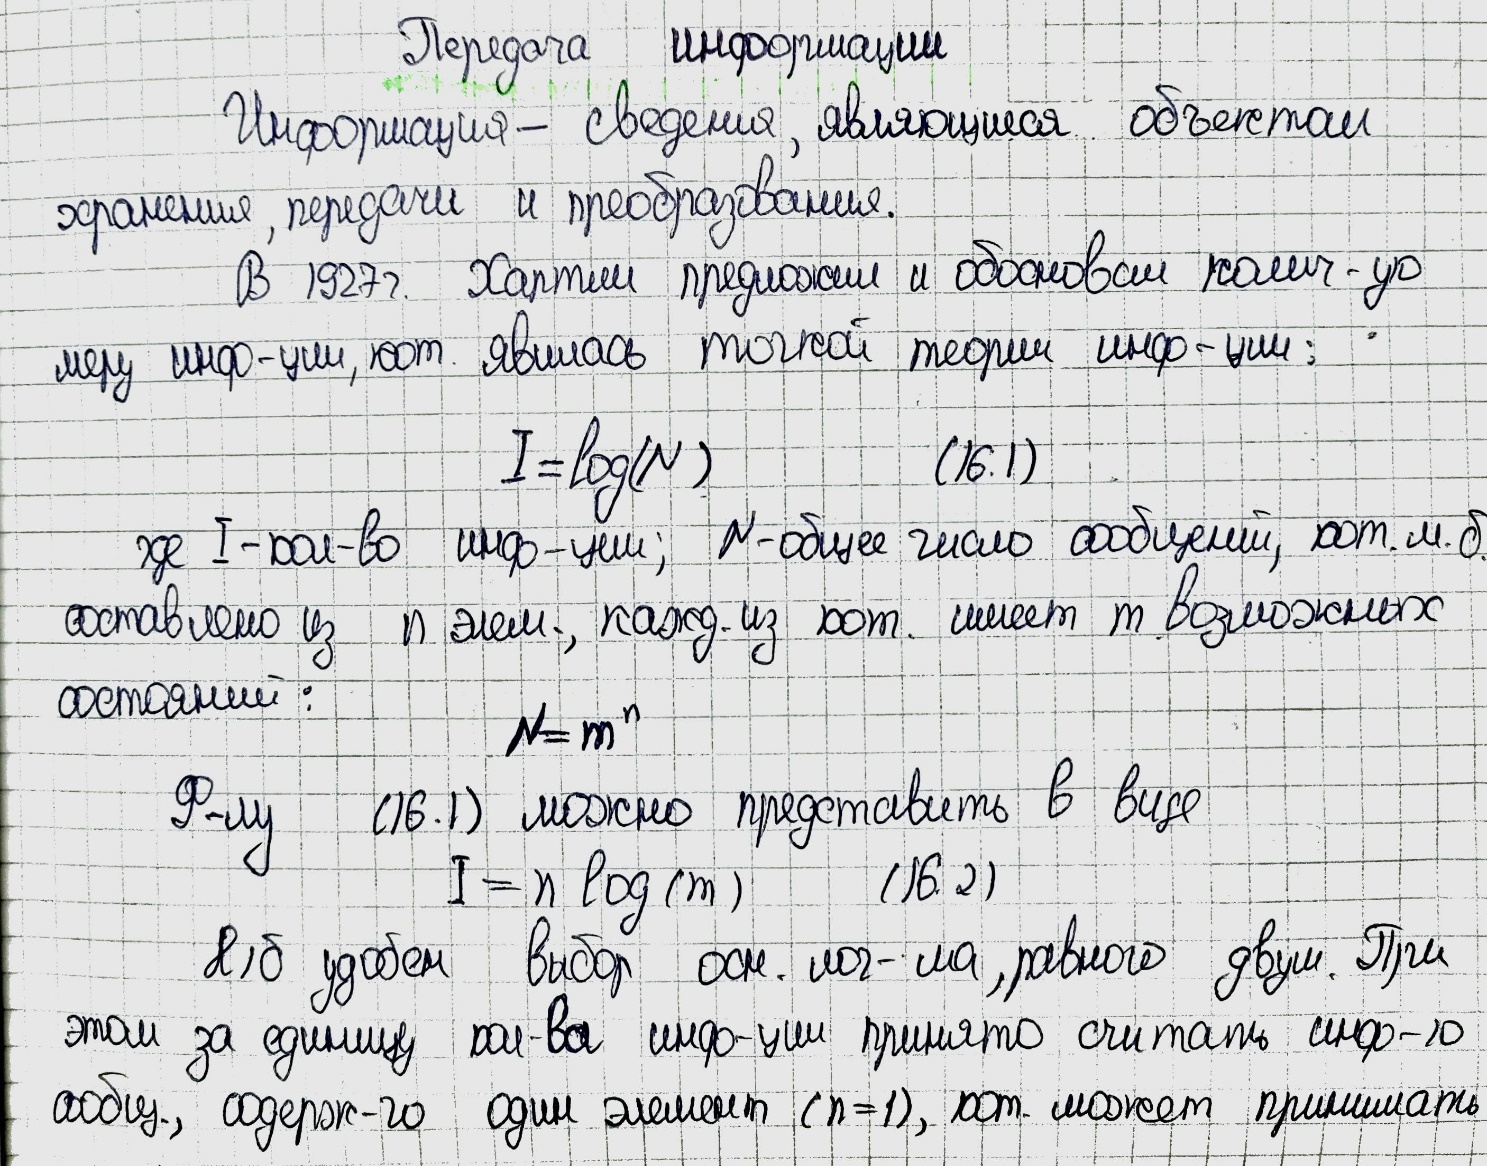 Передача информации
Информация – сведения, являющиеся объектом
хранения, передачи и преобразования.
В 1927г. Хартли предложил и обосновал колич-ую
меру инф-ции, кот. явилась точкой теории инф-ции:
I = log(N) (16.1)
где I - кол-во инф-ции; N - общее число сообщений, кот. м. б.
составлено из n элем., кажд. из кот. имеет m возможных
состояний:
N = mⁿ
Ф-лу (16.1) можно представить в виде
I = n log(m) (16.2)
удобен выбор осн. лог-ма, равного двум. При
этом за единицу кол-ва инф-ции принято считать инф-ю
сообщ., содерж-го один элемент (n=1), кот. может принимать